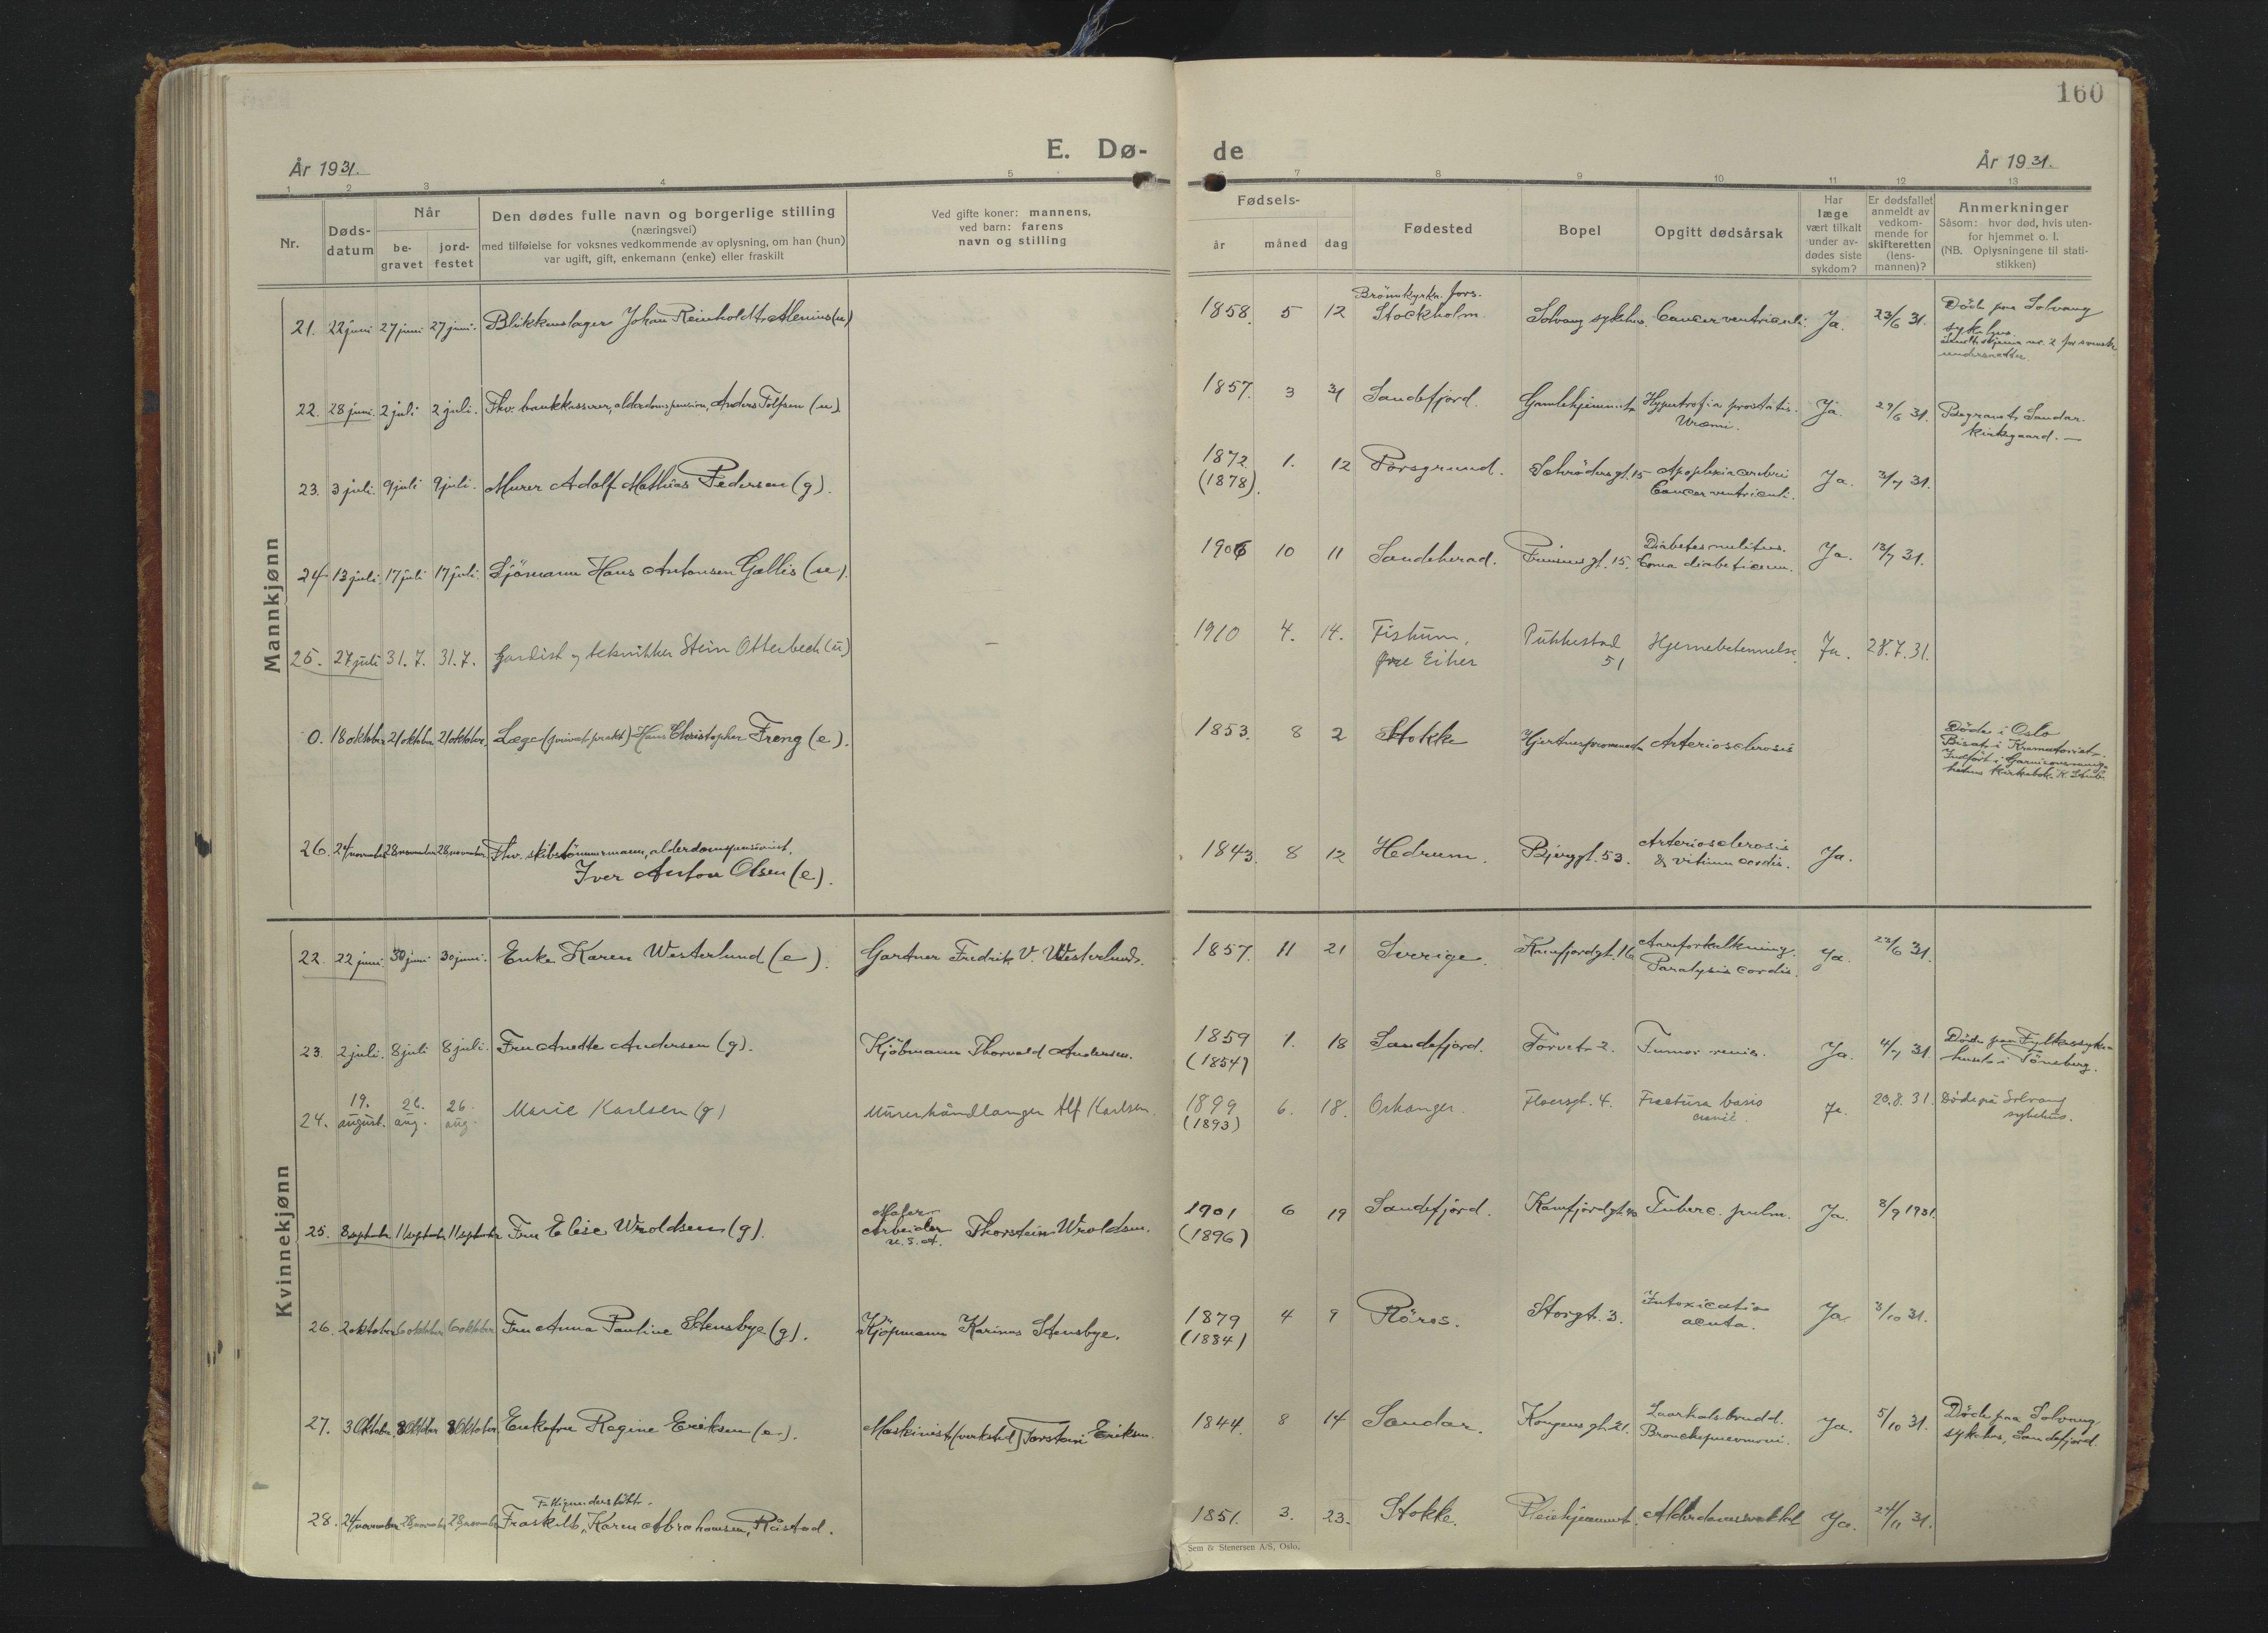 160
E. Dø-
de
År 1931.
År 1931.
1 2 3 4 5
7 8 9 10 11 12 13
Nr.
Døds-
datum
Når
be-
gravet
jord-
festet
Den dødes fulle navn og borgerlige stilling
(næringsvei)
med tilføielse for voksnes vedkommende av oplysning, om han (hun)
var ugift, gift, enkemann (enke) eller fraskilt
Ved gifte koner: mannens,
ved barn: farens
navn og stilling
Fødsels-
år måned dag
Fødested
Bopel
Opgitt dødsårsak
Har
læge
vært tilkalt
under av-
dødes siste
sykdom?
Er dødsfallet
anmeldt av
vedkom-
mende for
skifteretten
(lens-
mannen)?
Anmerkninger
Såsom: hvor død, hvis uten-
for hjemmet o. l.
(NB. Oplysningene til stati-
stikken)
Mannkjønn
21. 22 juni 27 juni 27 juni. Blikkenslager Johan Reinholdt Alenius (u)
1858. 5 12 Brönnkyrka fors.
Stockholm. Solvang sykehus. Cancer ventriculi. Ja. 23/6 31. Döde paa Solvang
sykehus.
22. 28 juni. 2 juli 2 juli. Fhv. bankkasserer, alderdomspension, Anders Tolfsen (u)
1857. 3 31 Sandefjord. Gamlehjemmet Hypertrofia prostatis.
Uræmi. Ja. 29/6 31. Begravet Sandar
kirkegaard. —
23. 3 juli. 9 juli 9 juli. Murer Adolf Mathias Pedersen (g).
1872. 1. 12 Porsgrund. Schrödersgt. 15 Apoplexia cerebri
(1878). Cancer ventriculi. Ja. 3/7 31.
24. 13 juli. 17 juli 17 juli. Sjömann Hans Antonsen Gallis (u).
1906 10 11 Sandeherad. gt. 15. Diabetes mellitus.
Coma diabeticum. Ja. 13/7 31.
25. 27 juli 31. 7. 31. 7. Gardist og tekniker Stein Otterbech (u) —
1910 4. 14. Fiskum,
Øvre Eiker Pukkestad
51 Hjernebetennelse Ja. 28.7.31.
0. 18 oktober 21 oktober 21 oktober. Læge (privat prakt) Hans Christopher Freng (e).
1853. 8 2 Stokke Arteriosclerosis
Döde i Oslo
Bisat i Krematoriet.
Indfört i Garnisonsmenig-
hetens kirkebok.
26. 24 november 28 november 28 november. Fhv. skibstömmermann, alderdomspensionist,
Iver Anton Olsen (e).
1843. 8 12 Hedrum. Bjerggt. 53. Arteriosclerosis
& vitium cordis. Ja.
Kvinnekjønn
22. 22 juni. 30 juni 30 juni. Enke Karen Westerlund (e). Gartner Fredrik V. Westerlund.
1857. 11 21 Sverige. Kamfjordgt. 16 Aareforkalkning.
Paralysis cordis. Ja. 23/6 31.
23. 2 juli. 8 juli 8 juli. Fru Anette Andersen (g). Kjöbmann Thorvald Andersen.
1859 1. 18 Sandefjord. Torvet 2. Tumor renis. Ja. 4/7 31. Döde paa Fylkessyke-
(1854) huset i Tönsberg.
24. 19.
august. 26.
aug. 26.
aug. Marie Karlsen (g) Murerhåndlanger Alf Karlsen.
1899 6. 18. Orkanger. Floersgt. 4. Fractura basis
(1893) cranii. Ja. 20.8.31. Døde på Solvang
sykehus.
25. 8 septembr. 11 septembr 11 septembr Fru Elise Wroldsen (g). Maler
Arbeider Thorstein Wroldsen.
U.S.A.
1901 6 19 Sandefjord. Kamfjordgt. Tuberc. pulm. Ja. 8/9 1931.
(1896)
26. 2 oktober 6 oktober 6 oktober Fru Anna Pauline Stensbye (g). Kjöpmann Karinus Stensbye.
1879 4 9 Röros. Storgt. 3. Intoxicatio
(1884) acuta. Ja. 3/10 31.
27. 3 Oktober 8 Oktober 8 Oktober. Enkefru Regine Eriksen (e). Maskinist (verksted) Torstein Eriksen.
1844. 8 14 Sandar. Kongens gt. 21. Laarhalsbrudd.
Bronchopneumoni. Ja. 5/10 31. Döde paa Solvang
sykehus, Sandefjord.
28. 24 november 28 november 28 november Fattigunderstöttet.
Fraskilt, Karen Abrahamsen, Råstad.
1851. 3. 23. Stokke. Pleiehjemmet. Alderdomssvakhet Ja. 24/11 31.
Sem & Stenersen A/S, Oslo.